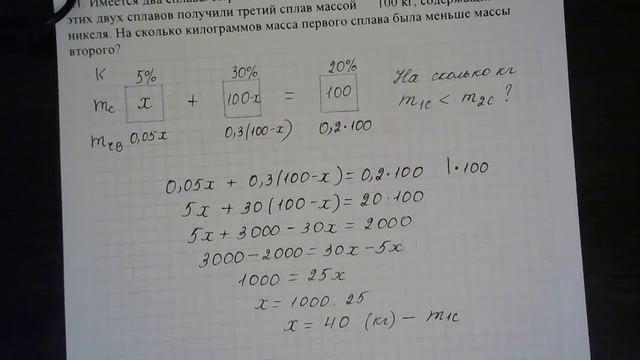 1. Имеется два сплава.
этих двух сплавов получили третий сплав массой 100 кг,
никеля. На сколько килограммов масса первого сплава была меньше массы
второго?
К 5% 30% 20% На сколько кг
mс x + 100-x = 100 m1с < m2с ?
mчв 0,05x 0,3(100-x) 0,2·100
0,05x + 0,3(100-x) = 0,2·100 |·100
5x + 30(100-x) = 20·100
5x + 3000 - 30x = 2000
3000 - 2000 = 30x - 5x
1000 = 25x
x = 1000 : 25
x = 40 (кг) - m1с